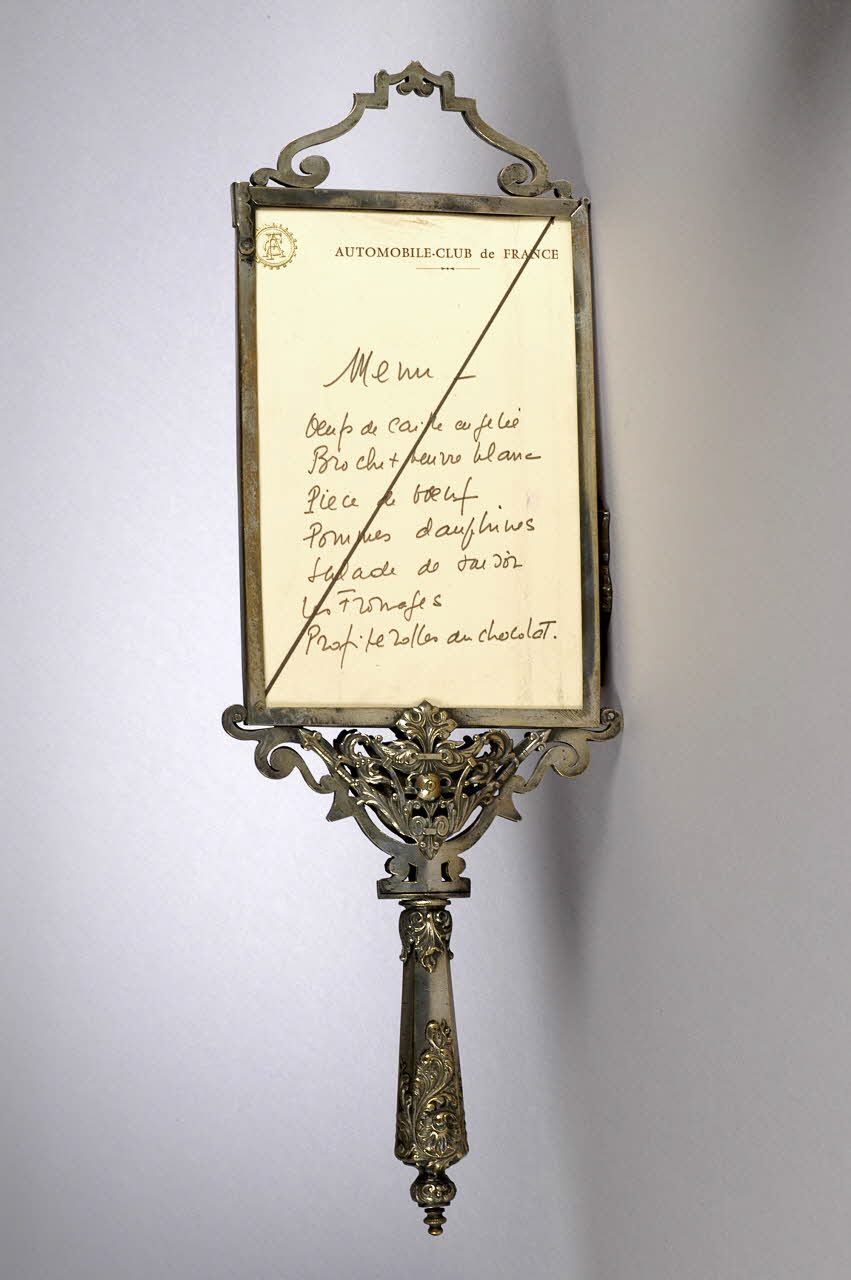 AUTOMOBILE-CLUB de FRANCE
Menu -
Oeufs de caille en gelée
Brochet beurre blanc
Pièce de boeuf
Pommes dauphines
Salade de saison
Les Fromages
Profiterolles au chocolat.